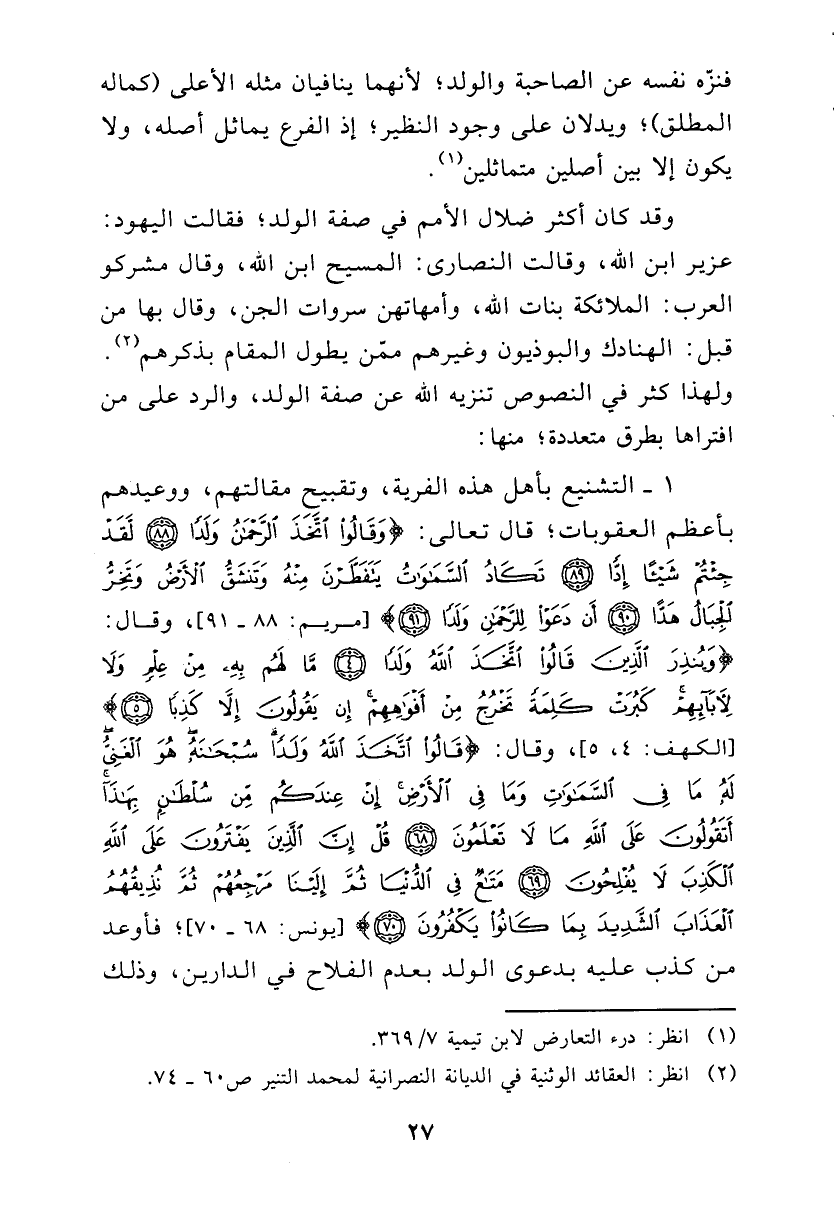 فنزّه نفسه عن الصاحبة والولد؛ لأنهما ينافيان مثله الأعلى (كماله
المطلق)؛ ويدلان على وجود النظير؛ إذ الفرع يماثل أصله، ولا
يكون إلا بين أصلين متماثلين(١).
وقد كان أكثر ضلال الأمم في صفة الولد؛ فقالت اليهود:
عزير ابن الله، وقالت النصارى: المسيح ابن الله، وقال مشركو
العرب: الملائكة بنات الله، وأمهاتهن سروات الجن، وقال بها من
قبل: الهنادك والبوذيون وغيرهم ممّن يطول المقام بذكرهم(٢).
ولهذا كثر في النصوص تنزيه الله عن صفة الولد، والرد على من
افتراها بطرق متعددة؛ منها:
١ ـ التشنيع بأهل هذه الفرية، وتقبيح مقالتهم، ووعيدهم
بأعظم العقوبات؛ قال تعالى: ﴿وَقَالُوا۟ ٱتَّخَذَ ٱلرَّحْمَٰنُ وَلَدًا ۝٨٨ لَّقَدْ
جِئْتُمْ شَيْـًٔا إِدًّا ۝٨٩ تَكَادُ ٱلسَّمَٰوَٰتُ يَتَفَطَّرْنَ مِنْهُ وَتَنشَقُّ ٱلْأَرْضُ وَتَخِرُّ
ٱلْجِبَالُ هَدًّا ۝٩٠ أَن دَعَوْا۟ لِلرَّحْمَٰنِ وَلَدًا ۝٩١﴾ [مريم: ٨٨ ـ ٩١]، وقال:
﴿وَيُنذِرَ ٱلَّذِينَ قَالُوا۟ ٱتَّخَذَ ٱللَّهُ وَلَدًا ۝٤ مَّا لَهُم بِهِۦ مِنْ عِلْمٍ وَلَا
لِـَٔابَآئِهِمْ ۚ كَبُرَتْ كَلِمَةً تَخْرُجُ مِنْ أَفْوَٰهِهِمْ ۚ إِن يَقُولُونَ إِلَّا كَذِبًا ۝٥﴾
[الكهف: ٤، ٥]، وقال: ﴿قَالُوا۟ ٱتَّخَذَ ٱللَّهُ وَلَدًا ۗ سُبْحَٰنَهُۥ ۖ هُوَ ٱلْغَنِىُّ ۖ
لَهُۥ مَا فِى ٱلسَّمَٰوَٰتِ وَمَا فِى ٱلْأَرْضِ ۚ إِنْ عِندَكُم مِّن سُلْطَٰنٍۭ بِهَٰذَآ ۚ
أَتَقُولُونَ عَلَى ٱللَّهِ مَا لَا تَعْلَمُونَ ۝٦٨ قُلْ إِنَّ ٱلَّذِينَ يَفْتَرُونَ عَلَى ٱللَّهِ
ٱلْكَذِبَ لَا يُفْلِحُونَ ۝٦٩ مَتَٰعٌ فِى ٱلدُّنْيَا ثُمَّ إِلَيْنَا مَرْجِعُهُمْ ثُمَّ نُذِيقُهُمُ
ٱلْعَذَابَ ٱلشَّدِيدَ بِمَا كَانُوا۟ يَكْفُرُونَ ۝٧٠﴾ [يونس: ٦٨ ـ ٧٠]؛ فأوعد
من كذب عليه بدعوى الولد بعدم الفلاح في الدارين، وذلك
(١) انظر: درء التعارض لابن تيمية ٣٦٩/٧.
(٢) انظر: العقائد الوثنية في الديانة النصرانية لمحمد التنير ص٦٠ ـ ٧٤.
٢٧